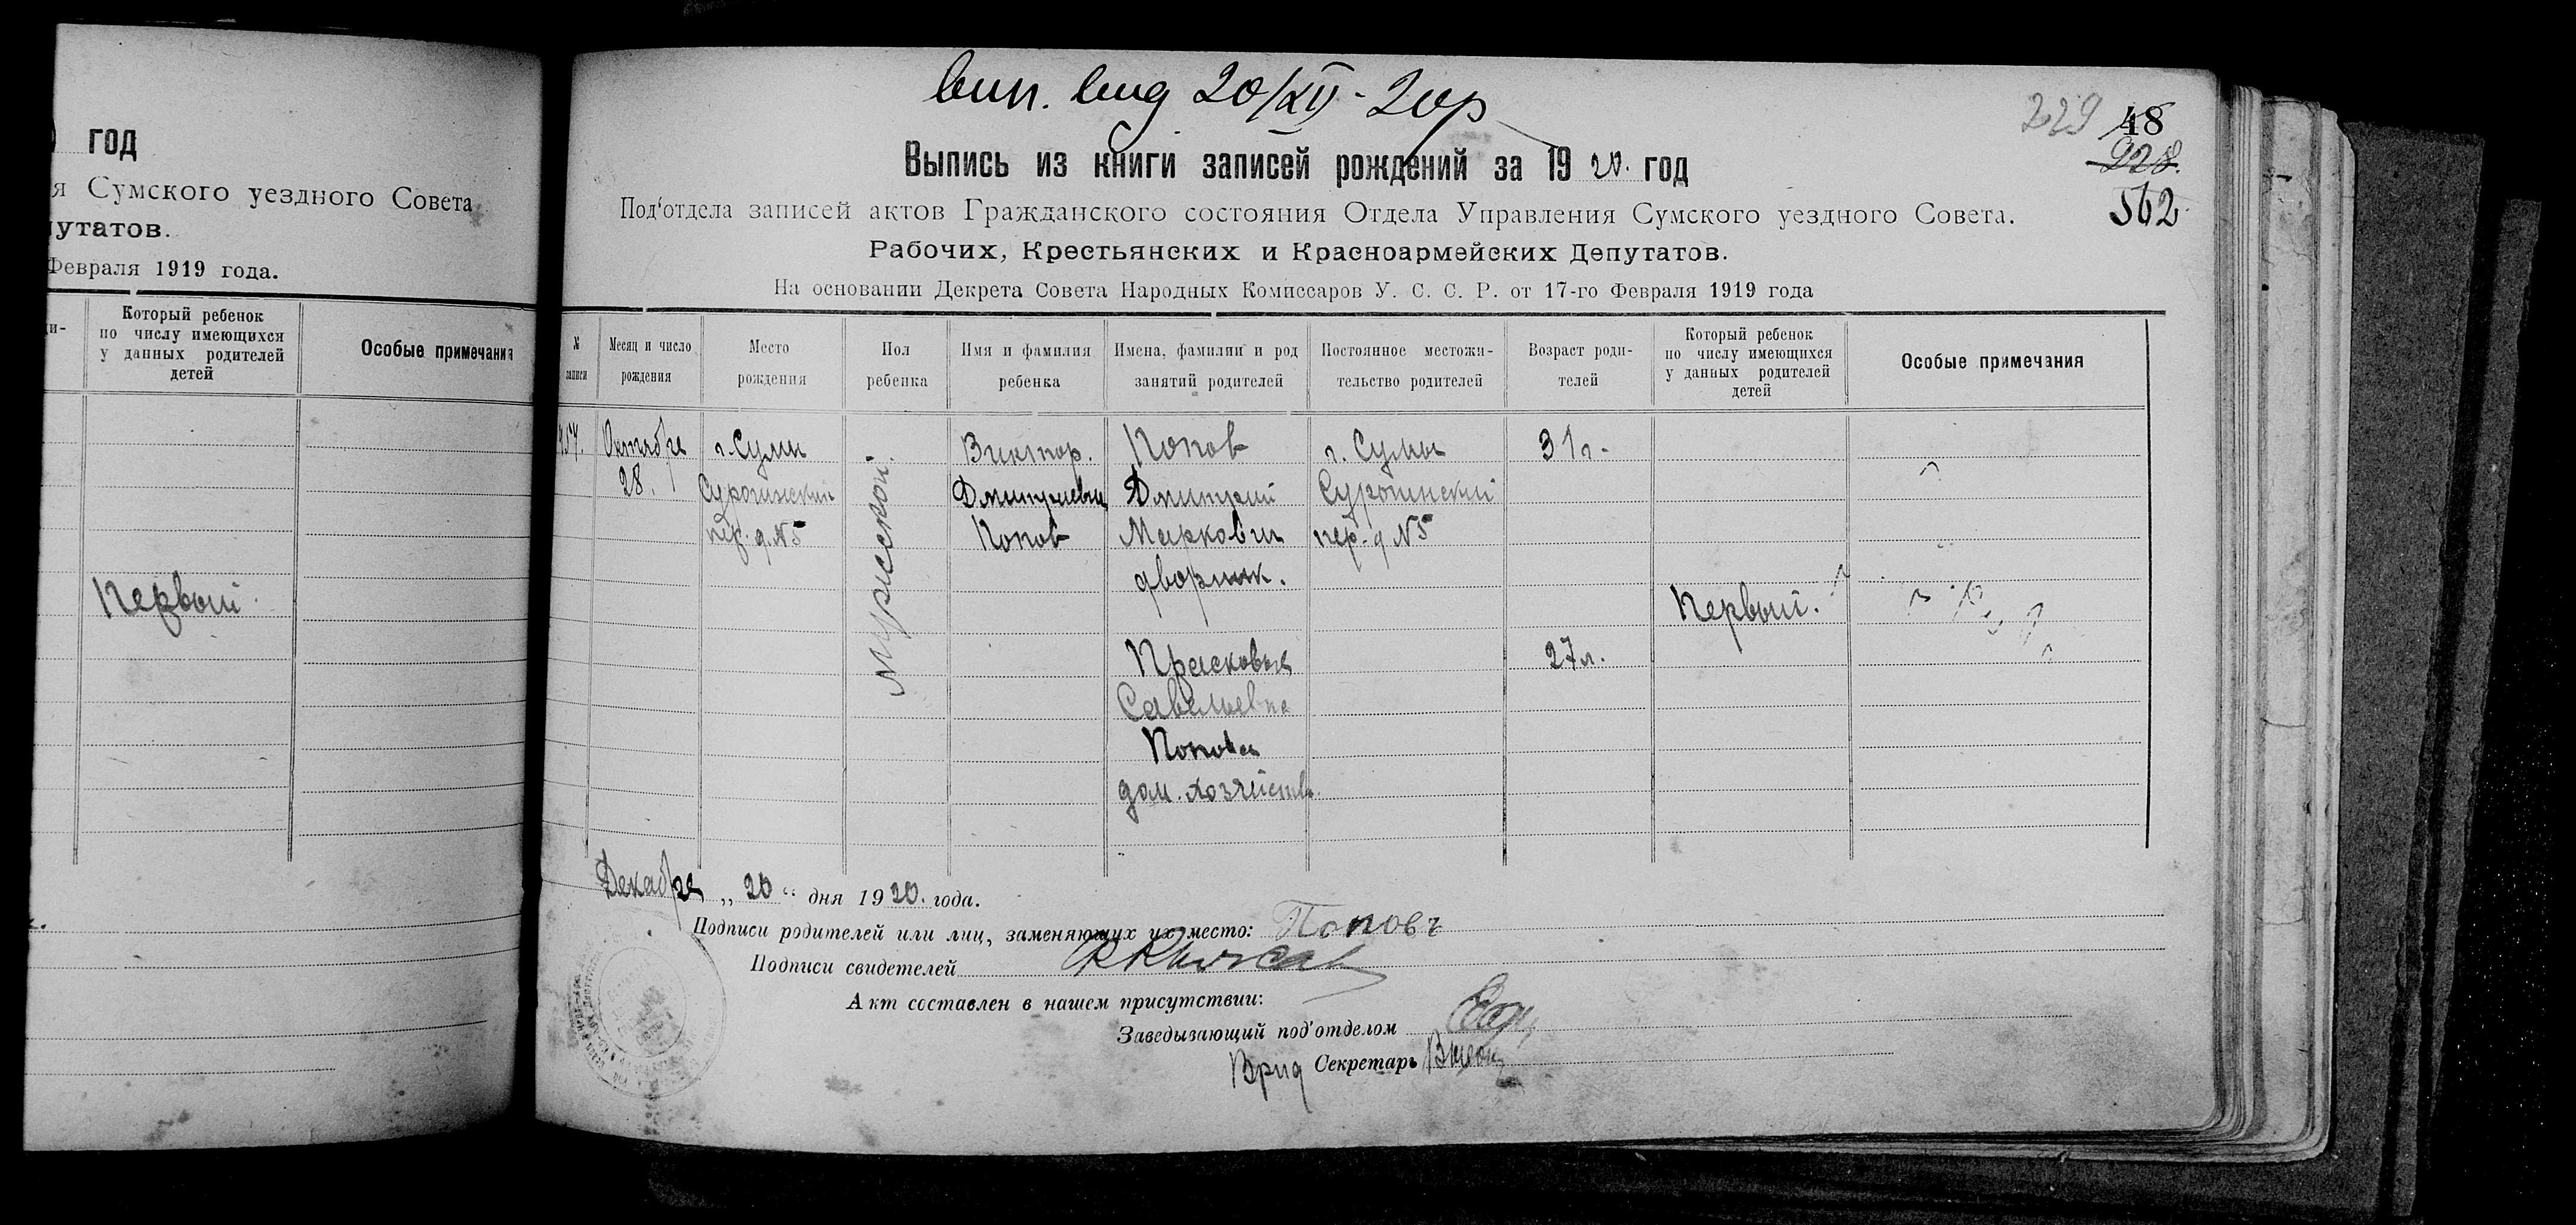 год
я Сумского уездного Совета
путатов.
Февраля 1919 года.
Который ребенок
по числу имеющихся
у данных родителей
детей
Особые примечания
Первый
вип. вид 20/XII - 20р
229 48
228.
562
Выпись из книги записей рождений за 1920. год
Под'отдела записей актов Гражданского состояния Отдела Управления Сумского уездного Совета.
Рабочих, Крестьянских и Красноармейских Депутатов.
На основании Декрета Совета Народных Комиссаров У. С. С. Р. от 17-го Февраля 1919 года
№
записи
Месяц и число
рождения
Место
рождения
Пол
ребенка
Имя и фамилия
ребенка
Имена, фамилии и род
занятий родителей
Постоянное местожи-
тельство родителей
Возраст роди-
телей
Который ребенок
по числу имеющихся
у данных родителей
детей
Особые примечания
Октября
28.
г. Сумы
пер. д. № 5
мужеской.
Виктор.
Дмитриевич
Попов
Попов
Дмитрий
Маркович
дворник.
Прасковья
Савельевна
Попова
дом. хозяйство.
г. Сумы
пер. д № 5
31 г.
27 л.
Первый.
Декабря „ 20 “ дня 1920. года.
Подписи родителей или лиц, заменяющих их место: Поповъ
Подписи свидетелей
Акт составлен в нашем присутствии:
Заведывающий под'отделом
Врид Секретарь